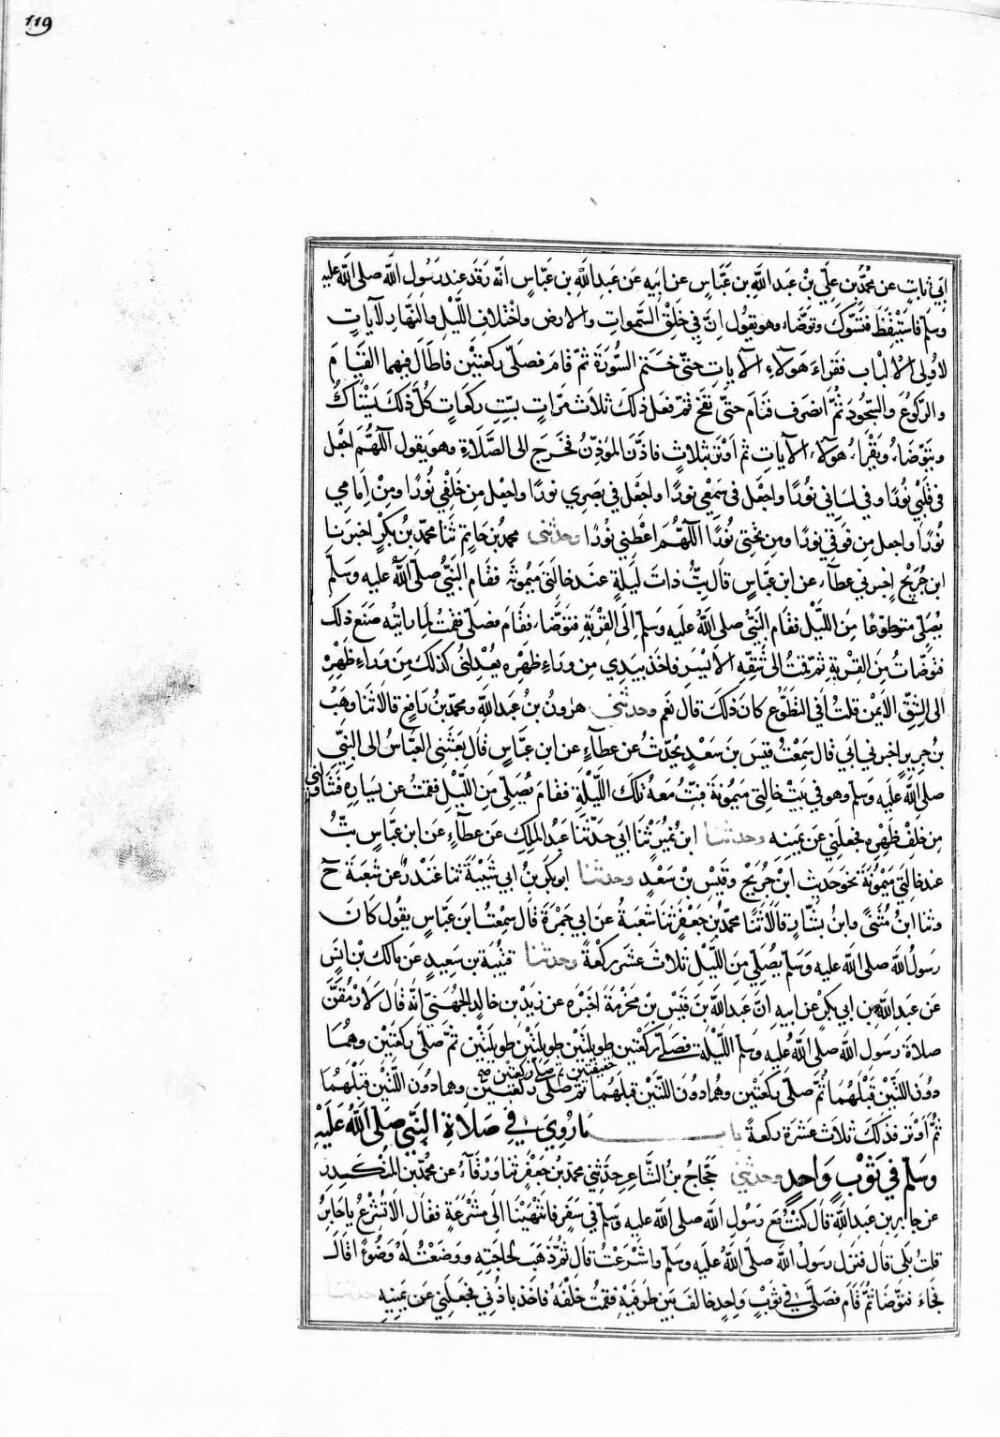 119
ابي ثابت عن محمد بن علي بن عبد الله بن عباس عن ابيه عن عبد الله بن عباس انه رقد عند رسول الله صلى الله عليه
وسلم فاستيقظ فتسوك وتوضاء وهو يقول ان في خلق السموات والارض واختلاف الليل والنهار لآيات
لاولى الالباب فقراء هولاء الآيات حتى ختم السورة ثم قام فصلى ركعتين فاطال فيهما القيام
والركوع والسجود ثم انصرف فنام حتى نفخ ثم فعل ذلك ثلاث مرات بست ركعات كل ذلك يستاك
ويتوضاء ويقراء هولاء الآيات ثم اوتر بثلاث فاذن الموذن فخرج الى الصلاة وهو يقول اللهم اجعل
في قلبي نورا وفي لساني نورا واجعل في سمعي نورا واجعل في بصري نورا واجعل من خلفي نورا ومن امامي
نورا واجعل من فوقي نورا ومن تحتي نورا اللهم اعطني نورا وحدثني محمد بن حاتم ثنا محمد بن بكر اخبرنا
ابن جريج اخبرني عطاء عن ابن عباس قال بت ذات ليلة عند خالتي ميمونة فقام النبي صلى الله عليه وسلم
يصلى متطوعا من الليل فقام النبي صلى الله عليه وسلم الى القربة فتوضاء فقام فصلى فقمت لما رايته صنع ذلك
فتوضات من القربة ثم قمت الى شقه الايسر فاخذ بيدي من وراء ظهره يعدلني كذلك من وراء ظهره
الى الشق الايمن قلت أفي التطوع كان ذلك قال نعم وحدثني هرون بن عبد الله ومحمد بن رافع قالا ثنا وهب
بن جرير اخبرني ابي قال سمعت قيس بن سعد يحدث عن عطاء عن ابن عباس قال بعثني العباس الى النبي
صلى الله عليه وسلم وهو في بيت خالتي ميمونة فبت معه تلك الليلة فقام يصلي من الليل فقمت عن يساره فتناولني
من خلف ظهره فجعلني عن يمينه وحدثنا ابن نمير ثنا ابي حدثنا عبد الملك عن عطاء عن ابن عباس بت
عند خالتي ميمونة نحو حديث ابن جريج وقيس بن سعد وحدثنا ابو بكر بن ابي شيبة ثنا غندر عن شعبة ح
وثنا ابن مثنى وابن بشار قالا ثنا محمد بن جعفر ثنا شعبة عن ابي جمرة قال سمعت ابن عباس يقول كان
رسول الله صلى الله عليه وسلم يصلي من الليل ثلاث عشر ركعة وحدثنا قتيبة بن سعيد عن مالك بن انس
عن عبد الله بن ابي بكر عن ابيه ان عبد الله بن قيس بن مخرمة اخبره عن زيد بن خالد الجهني انه قال لارمقن
صلاة رسول الله صلى الله عليه وسلم الليلة فصلى ركعتين طويلتين طويلتين طويلتين ثم صلى ركعتين وهما
خفيفتين ثم صلى ركعتين صح
دون اللتين قبلهما ثم صلى ركعتين وهما دون اللتين قبلهما ثم صلى ركعتين وهما دون اللتين قبلهما
ثم اوتر فذلك ثلاث عشرة ركعة باب ما روي في صلاة النبي صلى الله عليه
وسلم في ثوب واحد وحدثني حجاج بن الشاعر حدثني محمد بن جعفر ثنا ورقاء عن محمد بن المنكدر
عن جابر بن عبد الله قال كنت مع رسول الله صلى الله عليه وسلم في سفر فانتهينا الى مشرعة فقال الا تشرع يا جابر
قلت بلى قال فنزل رسول الله صلى الله عليه وسلم واشرعت قال ثم ذهب لحاجته ووضعت له وضوءا قال
فجاء فتوضا ثم قام فصلى في ثوب واحد خالف بين طرفيه فقمت خلفه فاخذ باذني فجعلني عن يمينه حدثنا